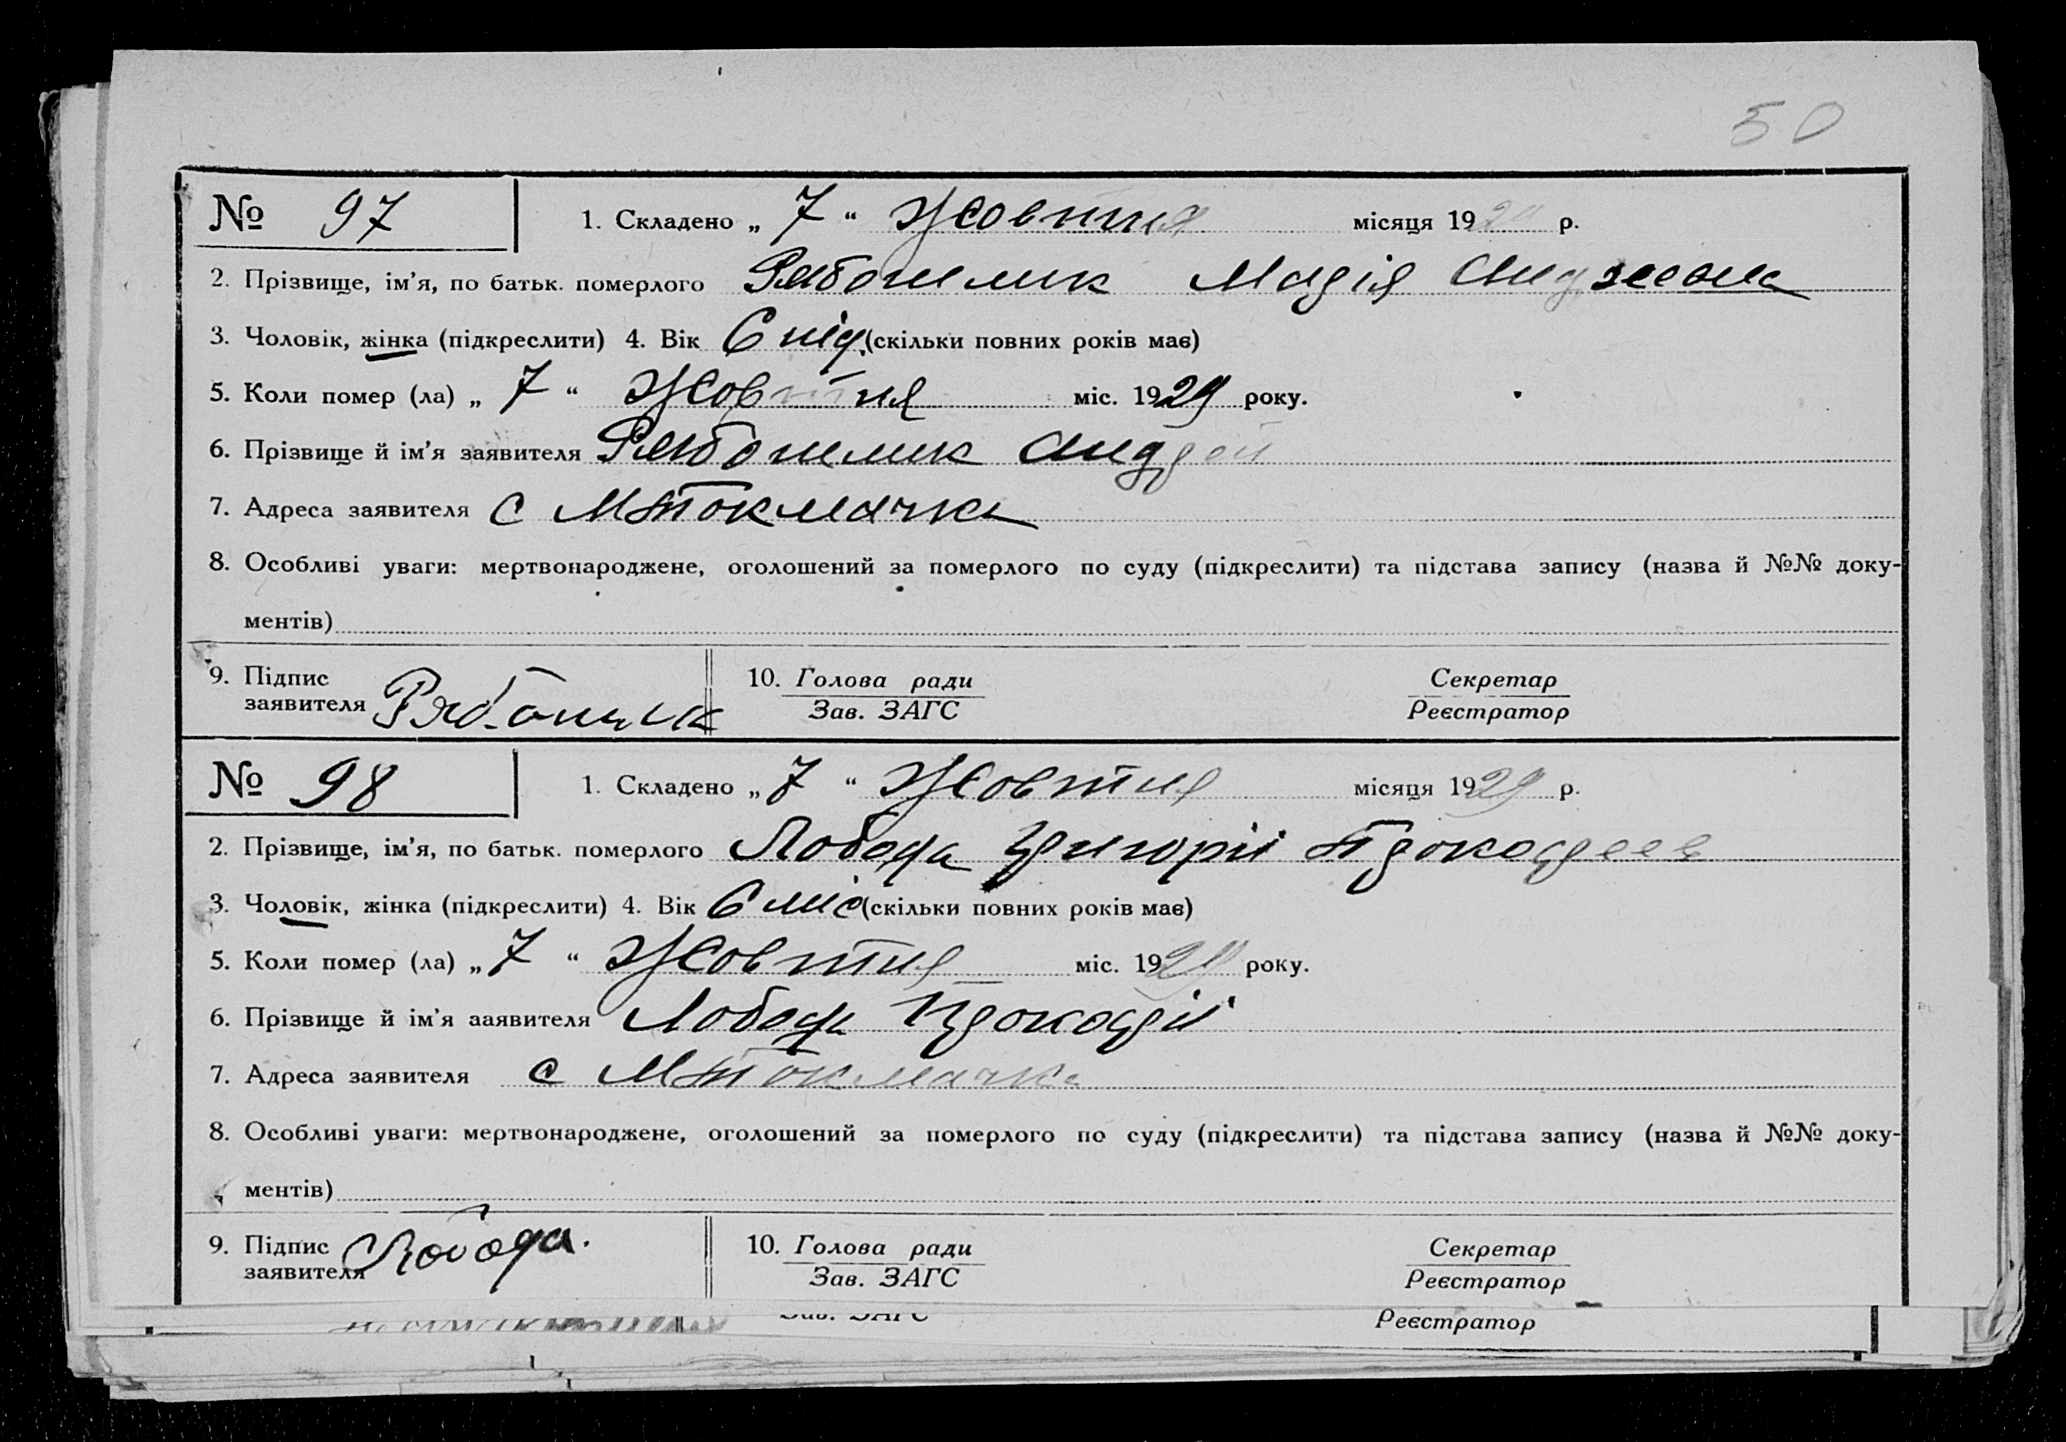 50
№ 97 1. Складено „ 7 “ Жовтня місяця 1929 р.
2. Прізвище, ім’я, по батьк. померлого Рябошлик Марія Андреевна
3. Чоловік, жінка (підкреслити) 4. Вік 6 нід. (скільки повних років має)
5. Коли помер (ла) „ 7 “ Жовтня міс. 1929 року.
6. Прізвище й ім’я заявителя Рябошлик Андрей
7. Адреса заявителя с МТокмачка
8. Особливі уваги: мертвонароджене, оголошений за померлого по суду (підкреслити) та підстава запису (назва й №№ доку-
ментів)
9. Підпис 10. Голова ради Секретар
заявителя Зав. ЗАГС Реєстратор
№ 98 1. Складено „ 7 “ Жовтня місяця 1929 р.
2. Прізвище, ім’я, по батьк. померлого Лобода Григорій
3. Чоловік, жінка (підкреслити) 4. Вік 6 міс (скільки повних років має)
5. Коли помер (ла) „ 7 “ Жовтня міс. 1929 року.
6. Прізвище й ім’я ааявителя Лобода
7. Адреса заявителя с МТокмачка
8. Особливі уваги: мертвонароджене, оголошений за померлого по суду (підкреслити) та підстава запису (назва й №№ доку-
ментів)
9. Підпис 10. Голова ради Секретар
заявителя Лобода. Зав. ЗАГС Реєстратор
Зав. ЗАГС Реєстратор